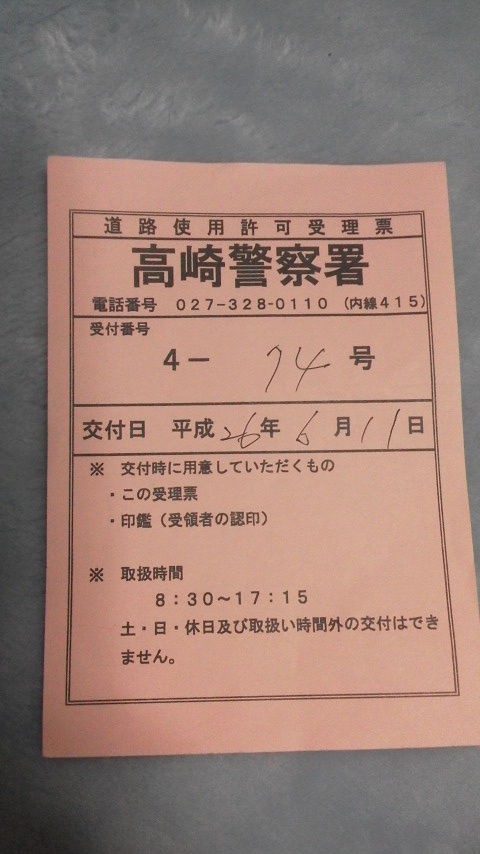 道路使用許可受理票
高崎警察署
電話番号 027-328-0110 (内線415)
受付番号
4- 74 号
交付日 平成26年6月11日
※ 交付時に用意していただくもの
・この受理票
・印鑑（受領者の認印）
※ 取扱時間
8：30～17：15
土・日・休日及び取扱い時間外の交付はでき
ません。